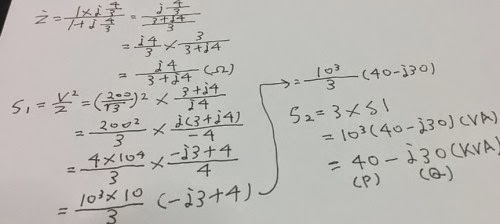 ż = 1×j4/3 / 1+j4/3 = j4/3 / 3+j4/3
= j4/3 × 3/3+j4
= j4/3+j4 (Ω)
S1 = V²/Z = (200/√3)² × 3+j4/j4
= 200²/3 × j(3+j4)/-4
= 4×10⁴/3 × -j3+4/4
= 10³×10/3 (-j3+4)
= 10³/3 (40-j30)
S2 = 3×S1
= 10³(40-j30)(VA)
= 40-j30(KVA)
(P) (Q)